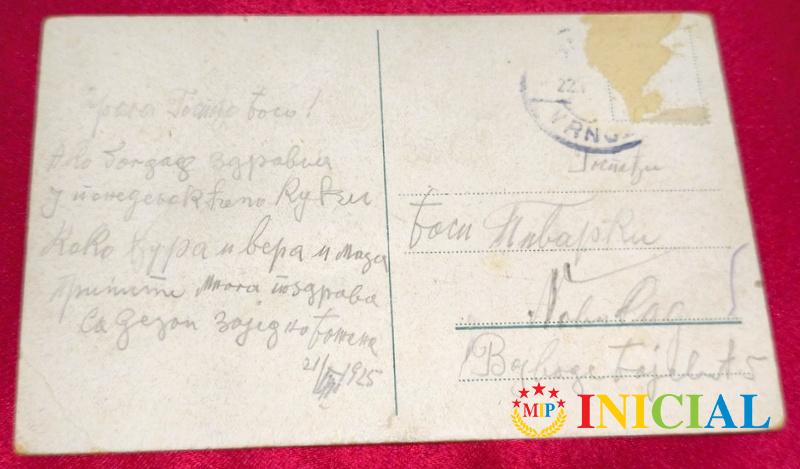 Драга Госпо босо!
Ако Богдад здравиа
у понедељак ћемо кући
Како ђура и вера и маза
Примите много поздрава
Са децом заједно
21/VIII 1925
22.
VRNJ
Госпођи
боси Пиварски
Novi Sad
5
MIP
INICIAL